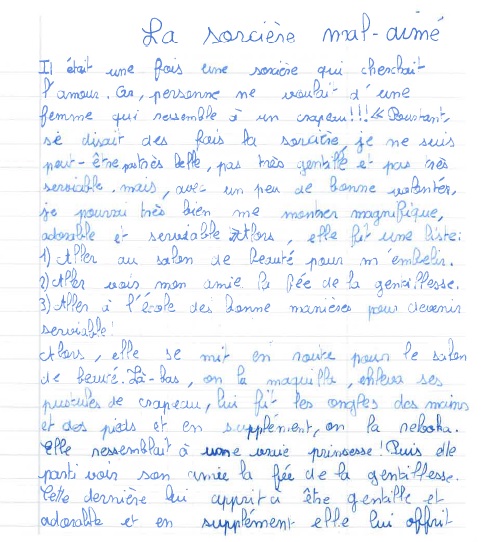 La sorcière mal-aimé
Il était une fois une sorcière qui cherchait
l'amour. Car, personne ne voulait d'une
femme qui ressemble à un crapeau!!! « Pourtant,
se disait des fois la sorcière, je ne suis
peut-être pas très belle, pas très gentille et pas très
serviable. mais, avec un peu de bonne volontée,
je pourrai très bien me montrer magnifique,
adorable et serviable. » Alors, elle fit une liste:
1) Aller au salon de beauté pour m'embelir.
2) Aller voir mon amie la fée de la gentillesse.
3) Aller à l'école des bonne manières pour devenir
serviable!
Alors, elle se mit en route pour le salon
de beauté. Là-bas, on la maquilla, enleva ses
pustules de crapeau, lui fit les ongles des mains
et des pieds et en supplément, on la relooka.
Elle ressemblait à une vraie princesse! Puis elle
parti voir son amie la fée de la gentillesse.
Cette dernière lui apprit à être gentille et
adorable et en supplément elle lui offrit